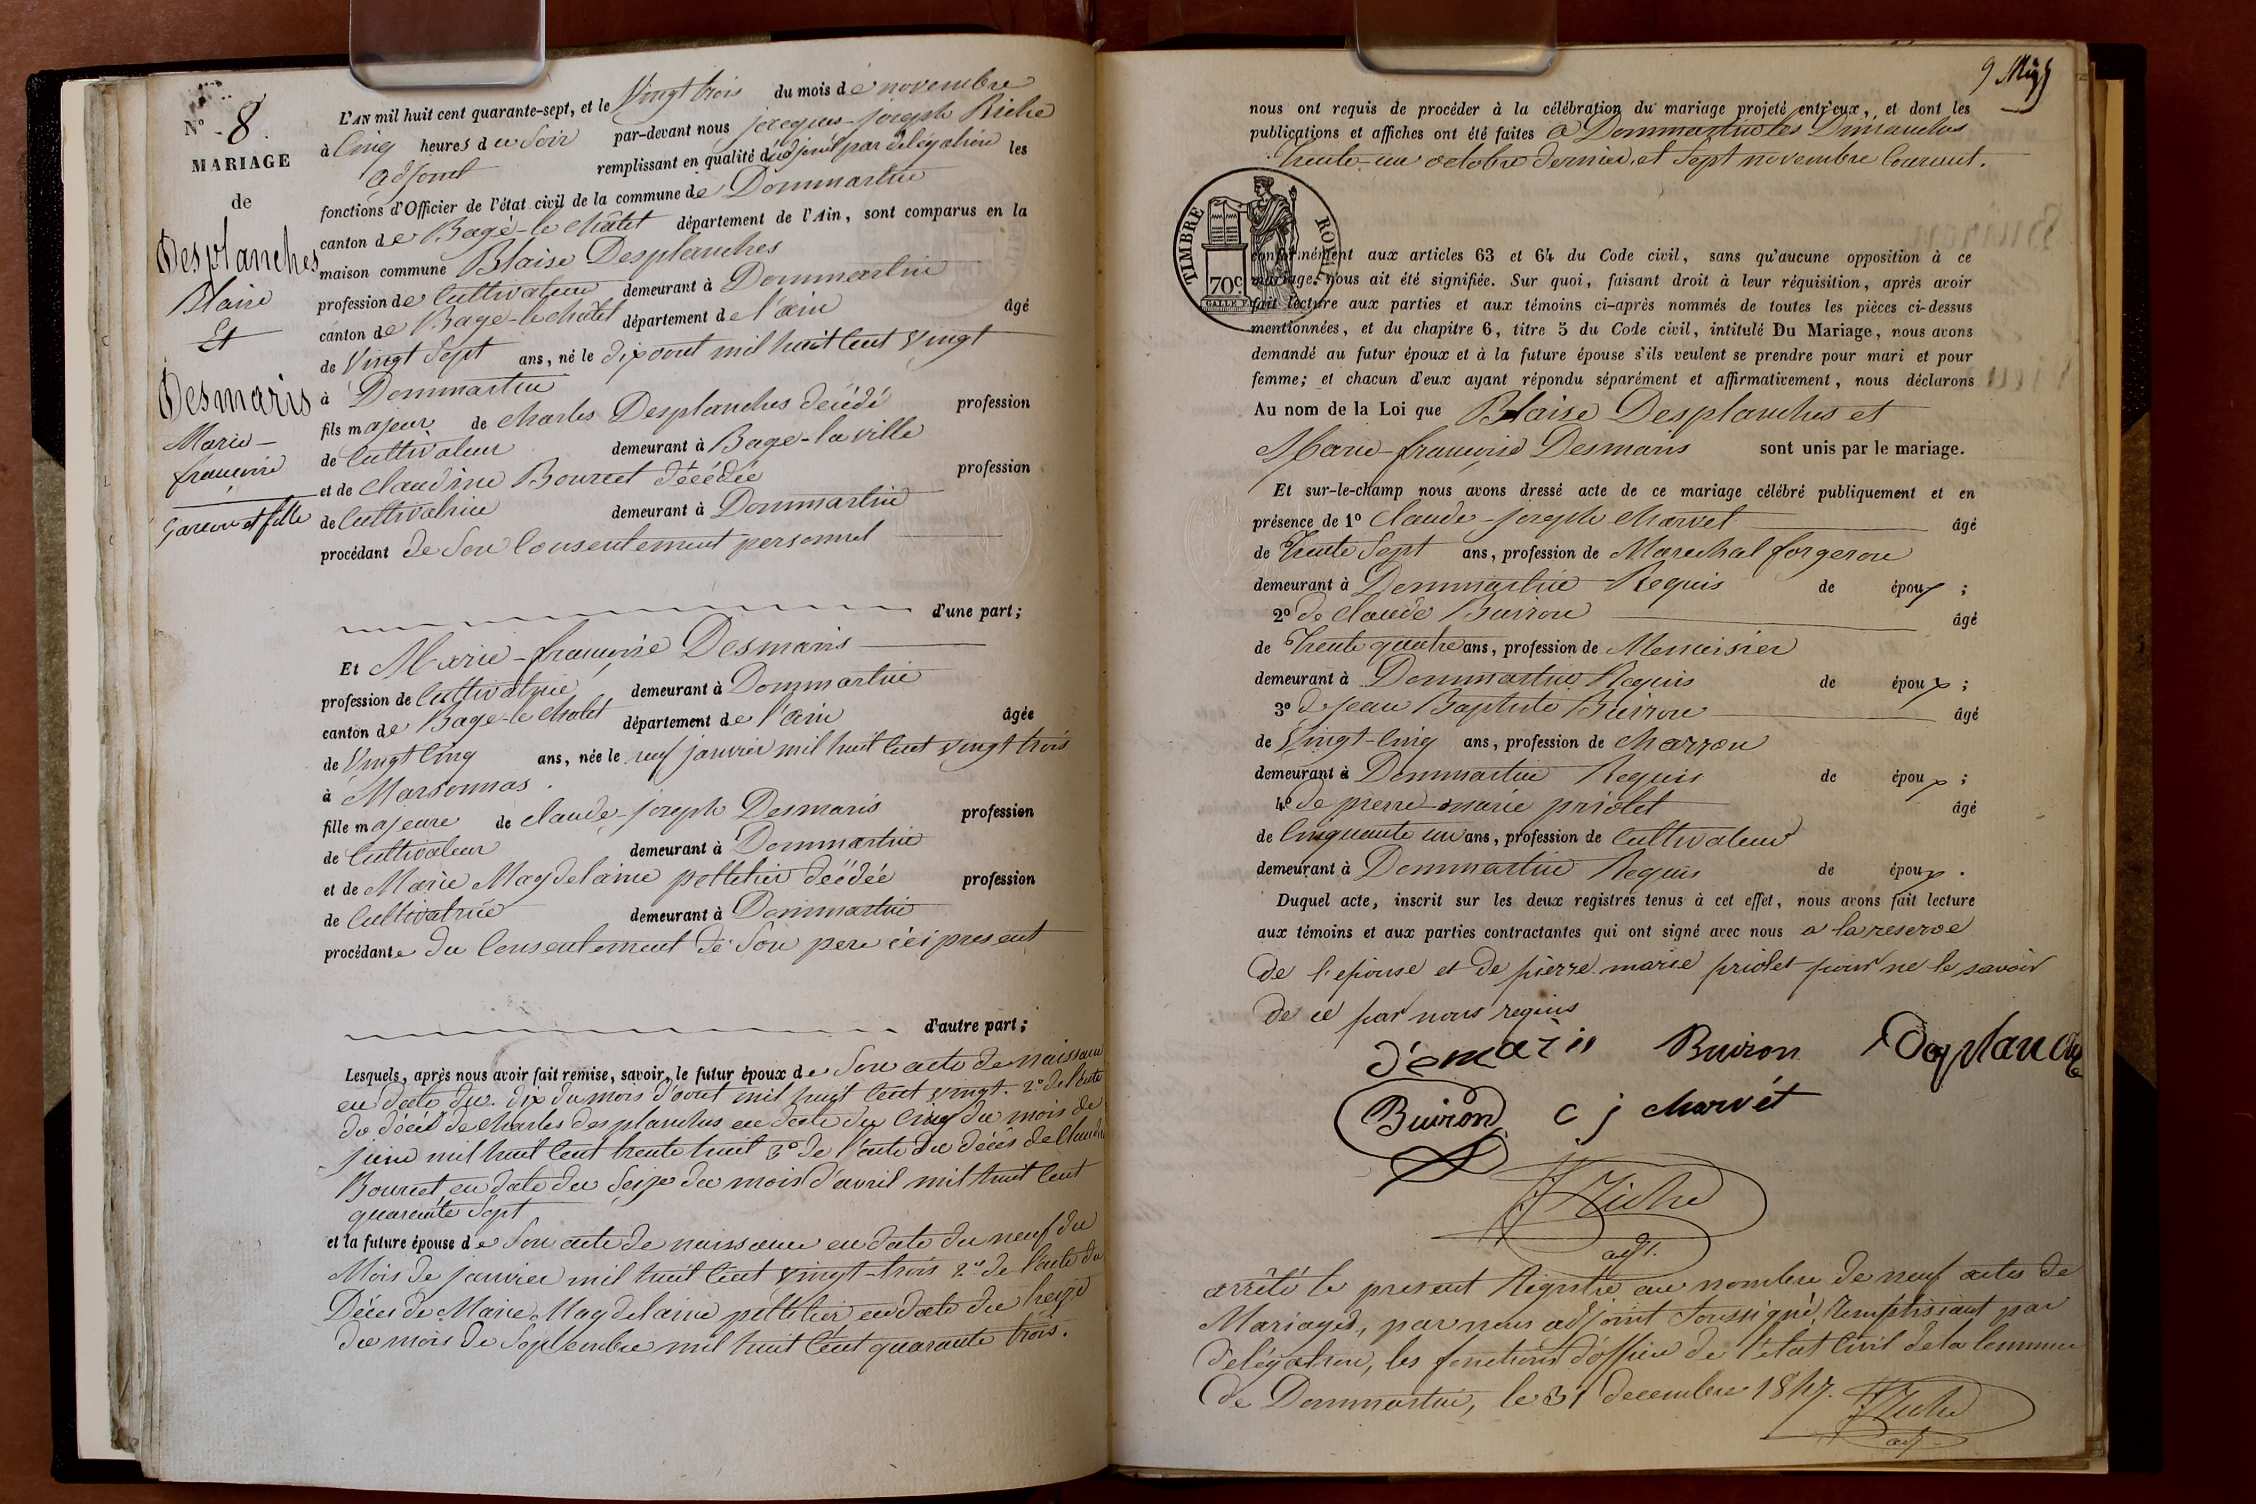 N° 8.
MARIAGE
de
Desplanches
Blaise
Et
Desmaris
Marie-
françoise
garcon et fille
L'AN mil huit cent quarante-sept, et le Vingt trois du mois de novembre
à Cinq heures du Soir par-devant nous jacques-joseph Riche
adjoint remplissant en qualité d'adjoint par délégation les
fonctions d'Officier de l'état civil de la commune de Dommartin
canton de Bagé-le châtel département de l'Ain, sont comparus en la
maison commune Blaise Desplanches
profession de Cultivateur demeurant à Dommartin
canton de Bagé-le châtel département de l'ain âgé
de Vingt Sept ans, né le dix aout mil huit Cent Vingt
à Dommartin
fils majeur de charles Desplanches décédé profession
de Cultivateur demeurant à Bage-la ville
et de claudine Bourcet décédée profession
de Cultivatrice demeurant à Dommartin
procédant de Son Consentement personnel
d'une part;
Et Marie-françoise Desmaris
profession de Cultivatrice demeurant à Dommartin
canton de Bage-le chatel département de l'ain âgée
de Vingt Cinq ans, née le neuf janvier mil huit Cent vingt trois
à Marsonnas.
fille majeure de claude-joseph Desmaris profession
de Cultivateur demeurant à Dommartin
et de Marie Magdelaine pelletier décédée profession
de Cultivatrice demeurant à Dommartin
procédante du Consentement de Son pere ici present
d'autre part;
Lesquels, après nous avoir fait remise, savoir, le futur époux de Son acte de naissance
en date du dix du mois d'aout mil huit Cent vingt. 2° de l'acte
de décès de charles desplanches en date du Cinq du mois de
juin mil huit Cent trente huit 3° de l'acte du décès de Claudine
Bourcet en date du Seize du mois d'avril mil huit Cent
quarante Sept
et la future épouse de Son acte de naissance en date du neuf du
Mois de janvier mil huit Cent vingt-trois 2° de l'acte du
Décès de Marie Magdelaine pelletier en date du treize
du mois de Septembre mil huit Cent quarante trois.
9
nous ont requis de procéder à la célébration du mariage projeté entr'eux, et dont les
publications et affiches ont été faites a Dommartin les Dimanches
trente-un octobre dernier et Sept novembre Courant.
TIMBRE ROYAL
70c
conformément aux articles 63 et 64 du Code civil, sans qu'aucune opposition à ce
mariage nous ait été signifiée. Sur quoi, faisant droit à leur réquisition, après avoir
fait lecture aux parties et aux témoins ci-après nommés de toutes les pièces ci-dessus
mentionnées, et du chapitre 6, titre 5 du Code civil, intitulé Du Mariage, nous avons
demandé au futur époux et à la future épouse s'ils veulent se prendre pour mari et pour
femme; et chacun d'eux ayant répondu séparément et affirmativement, nous déclarons
Au nom de la Loi que Blaise Desplanches et
Marie-françoise Desmaris sont unis par le mariage.
Et sur-le-champ nous avons dressé acte de ce mariage célébré publiquement et en
présence de 1° Claude-joseph charvet âgé
de Trente Sept ans, profession de Marechal forgeron
demeurant à Dommartin Requis de époux;
2° de claude Buiron âgé
de Trente quatre ans, profession de Menuisier
demeurant à Dommartin Requis de époux;
3° de jean Baptiste Buiron âgé
de Vingt-Cinq ans, profession de charron
demeurant à Dommartin Requis de époux;
4° de pierre-marie priolet âgé
de Cinquante un ans, profession de Cultivateur
demeurant à Dommartin Requis de époux.
Duquel acte, inscrit sur les deux registres tenus à cet effet, nous avons fait lecture
aux témoins et aux parties contractantes qui ont signé avec nous a la reserve
de l'epouse et de pierre marie priolet pour ne le savoir
de ce par nous requis
démaris Buiron Desplanche
Buiron c j charvét
JJ Riche
adjt.
arrêté le present Registre au nombre de neuf actes de
Mariages, par nous adjoint Soussigné, remplissant par
délégation, les fonctions d'officier de l'état Civil de la Commune
de Dommartin, le 31 decembre 1847. JJ Riche
adj